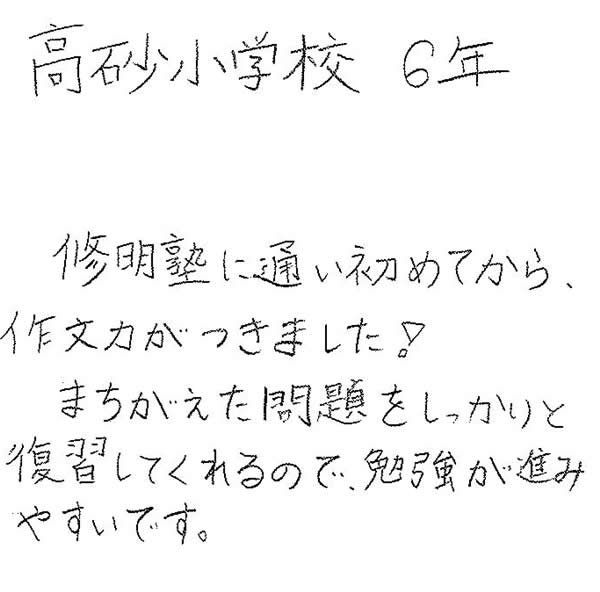 高砂小学校 6年
修明塾に通い初めてから、
作文力がつきました!
まちがえた問題をしっかりと
復習してくれるので、勉強が進み
やすいです。